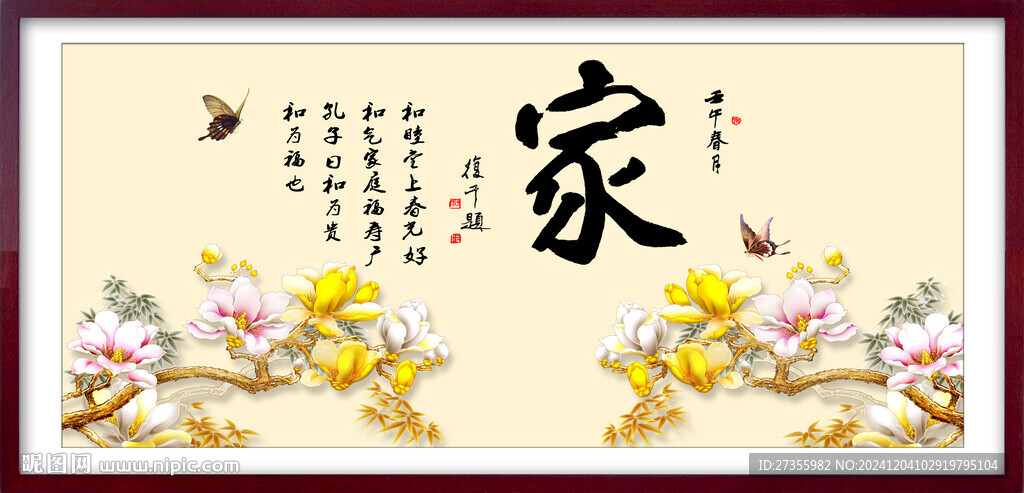 壬午春月
家
復干題
和睦堂上春光好
和气家庭福寿广
孔子曰和为贵
和为福也
昵图网 www.nipic.com
ID:27355982 NO:20241204102919795104